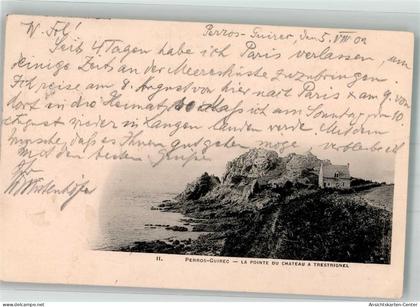 Perros-Guirec den 5. VIII 02
W. Frl!
Seit 4 Tagen habe ich Paris verlassen, um
einige Zeit an der Meeresküste zuzubringen.
Ich reise am 8. August von hier nach Paris & am 9. von
dort in die Heimat, so daß ich am Sonntag, den 10.
August wieder in Langen landen werde. Mit dem
Wunsche, daß es Ihnen gut gehen möge, verbleibe ich
Mit den besten Grüßen
11.
PERROS-GUIREC — LA POINTE DU CHATEAU A TRESTRIGNEL
www.ansichtskarten-center.de
Ansichtskarten-Center